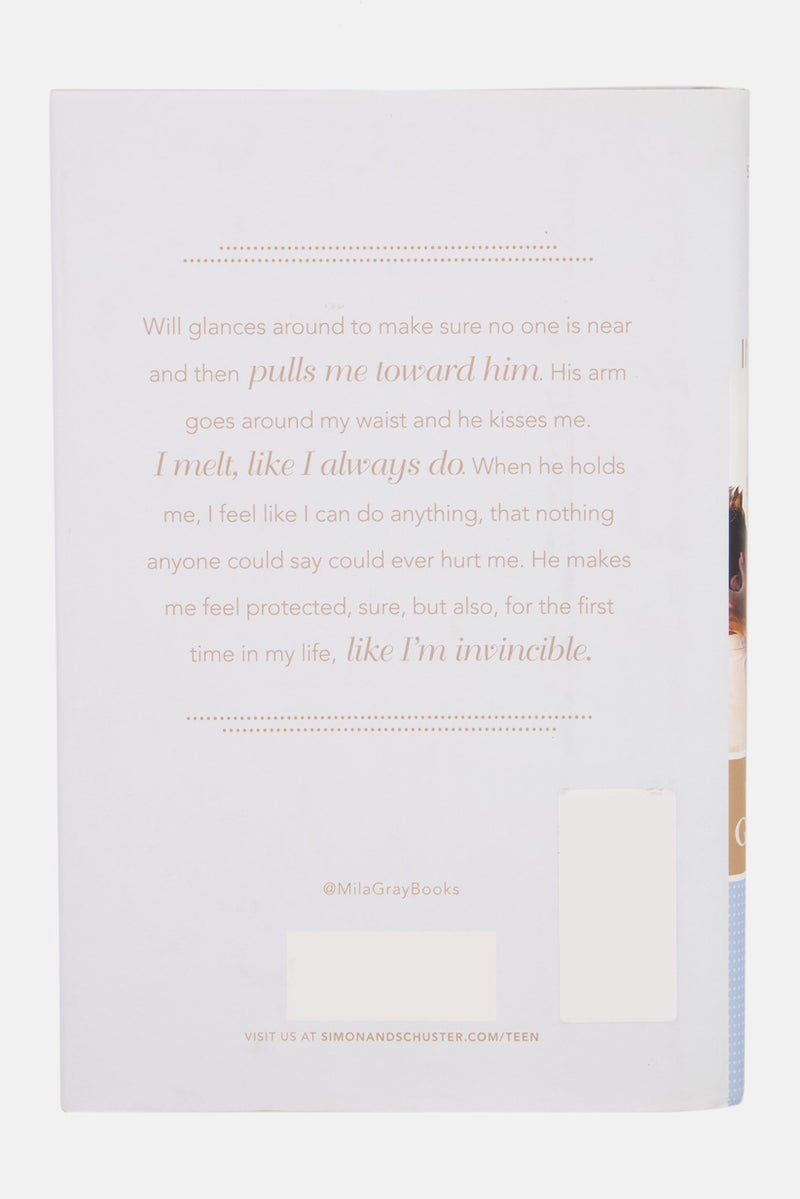 Will glances around to make sure no one is near
and then pulls me toward him. His arm
goes around my waist and he kisses me.
I melt, like I always do. When he holds
me, I feel like I can do anything, that nothing
anyone could say could ever hurt me. He makes
me feel protected, sure, but also, for the first
time in my life, like I'm invincible.
@MilaGrayBooks
VISIT US AT SIMONANDSCHUSTER.COM/TEEN